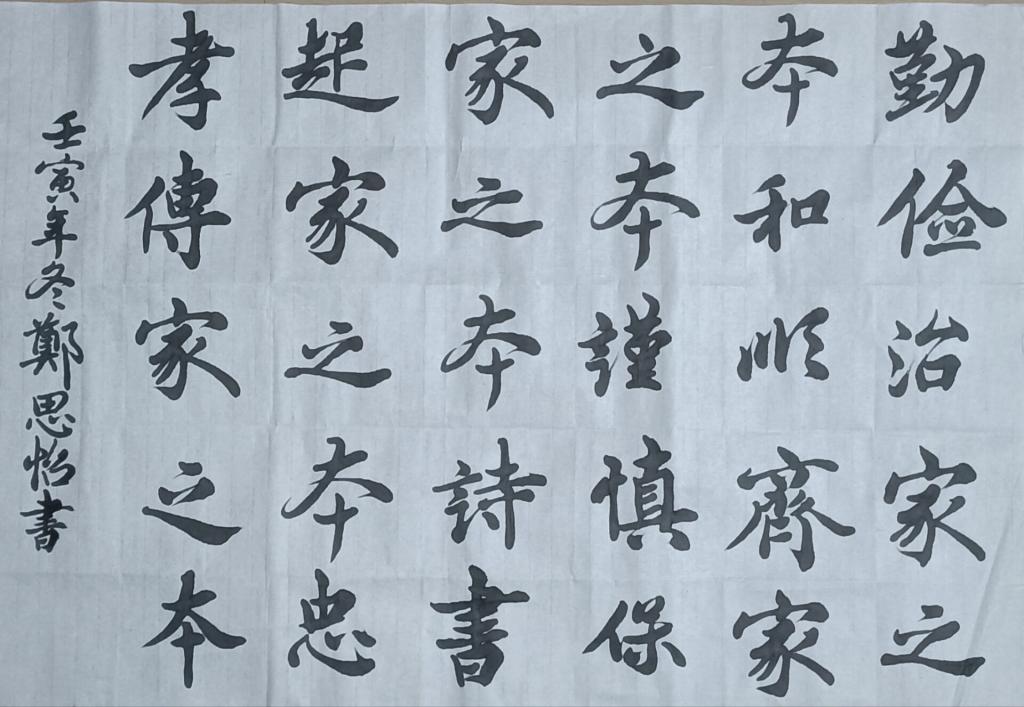 勤俭治家之
本和顺齊家
之本謹慎保
家之本詩書
起家之本忠
孝傳家之本
壬寅年冬鄭思怡書